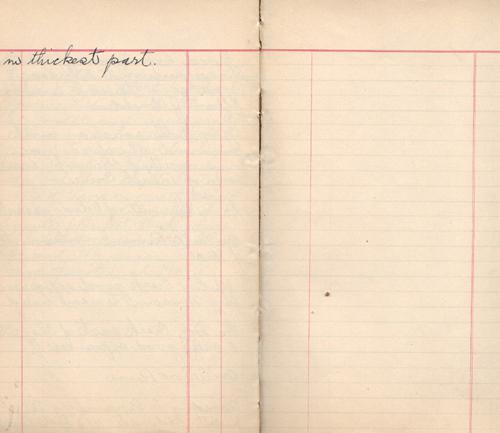 in thickest part.